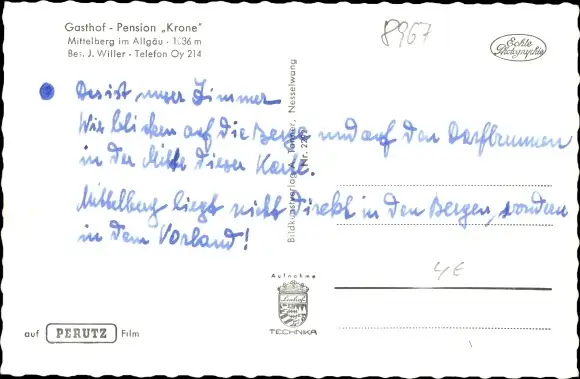 Gasthof - Pension „Krone"
Mittelberg im Allgäu · 1036 m
Bes. J. Willer · Telefon Oy 214
8967
Echte Photographie
Das ist unser Zimmer
Wir blicken auf die Berge und auf den Dorfbrunnen
in der Mitte dieser Karte.
Mittelberg liegt nicht direkt in den Bergen, sondern
in dem Vorland!
Bildkunstverlag A. Nesselwang
Nr.
4€
Aufnahme
Linhof
TECHNIKA
auf PERUTZ Film